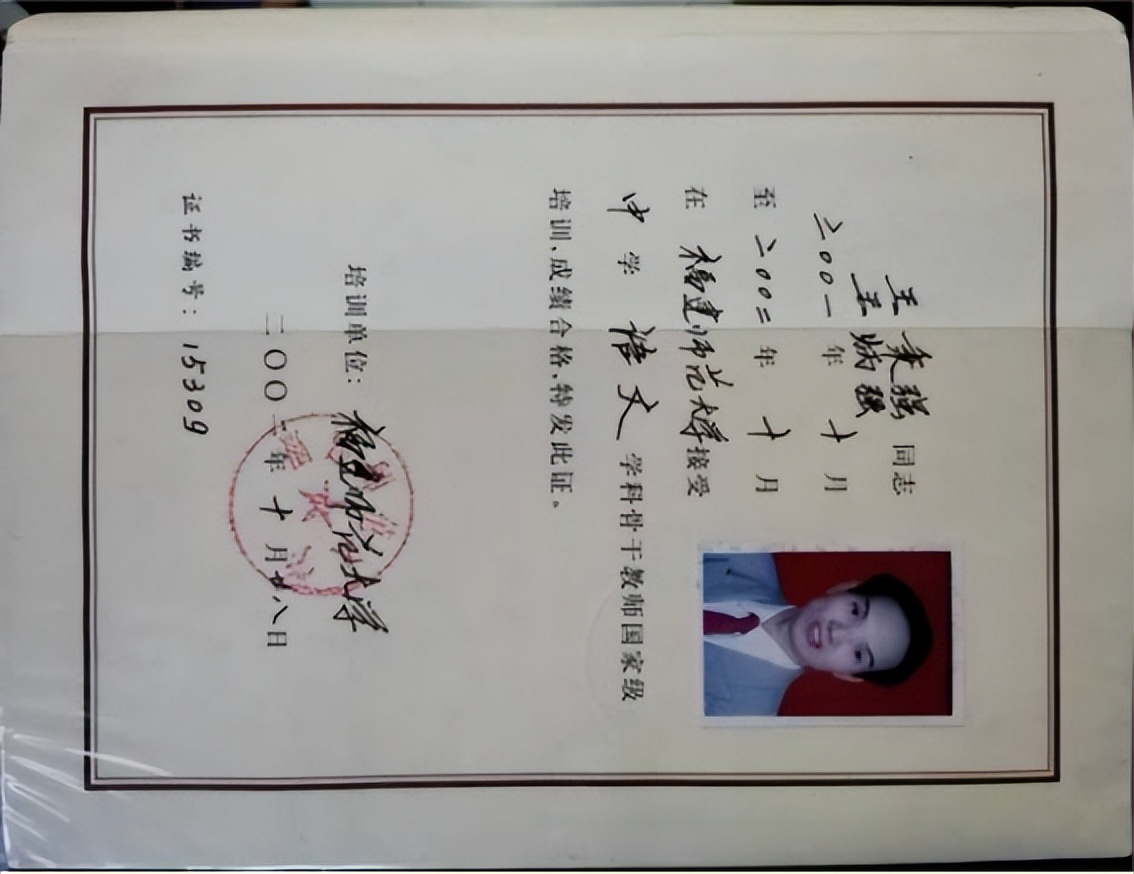 王秉强 同志
王炳强
二00一年十月
至二00二年十月
在福建师范大学接受
中学语文学科骨干教师国家级
培训,成绩合格,特发此证。
培训单位:福建师范大学
二〇〇二年十月廿八日
证书编号:15309